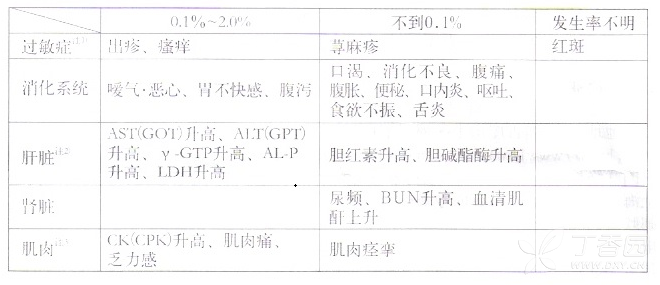 0.1%~2.0% 不到0.1% 发生率不明
过敏症注1) 出疹、瘙痒 荨麻疹 红斑
消化系统 嗳气·恶心、胃不快感、腹泻 口渴、消化不良、腹痛、
腹胀、便秘、口内炎、呕吐、
食欲不振、舌炎
肝脏注2 AST(GOT)升高、ALT(GPT)
升高、γ-GTP升高、AL-P
升高、LDH升高 胆红素升高、胆碱酯酶升高
肾脏 尿频、BUN升高、血清肌
酐上升
肌肉注3 CK(CPK)升高、肌肉痛、
乏力感 肌肉痉挛
丁香园